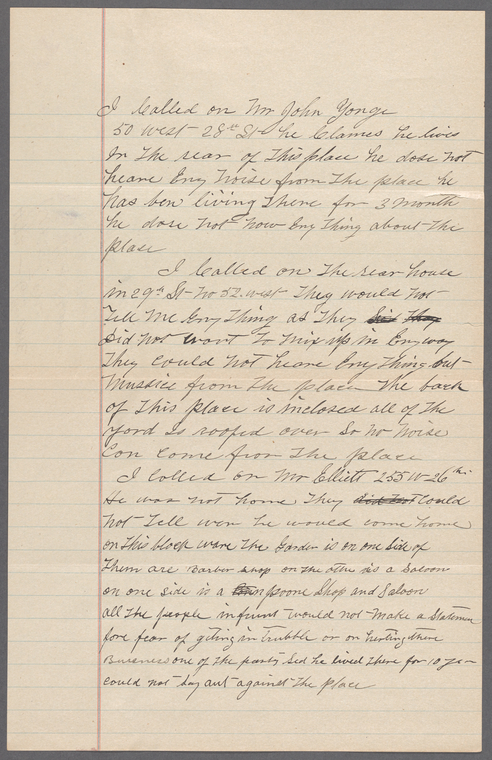 I Called on Mr John Yonge
50 west 28th St he Clames he lives
In the rear of this place he dose not
heare Eny Noise from the place he
has ben living there for 3 month
he dose not now Eny thing about the
place
I Called on the rear house
in 29th St No 52 west They would not
Tell Me Eny thing as They did They
did Not want to Mix up in Enyway
They Could Not heare Eny thing but
Mussice from the place The back
of This place is inclosed all of the
yord is roofed over So No Noise
Con Come from The place
I Colled on Mr Elliett 255 W 26th
He was not home They did Not Could
Not Tell wen he would come home
on This block ware The Garden is on one Side of
Them are Barber Shop on the othe is a Saloon
on one side is a poone Shop and Saloon
all The people infrunt would not Make a Statemen
fore fear of giting in Trubble or on herting there
Buseness one of the party Sed he lived There for 10 yea
Could not Say ant against The place